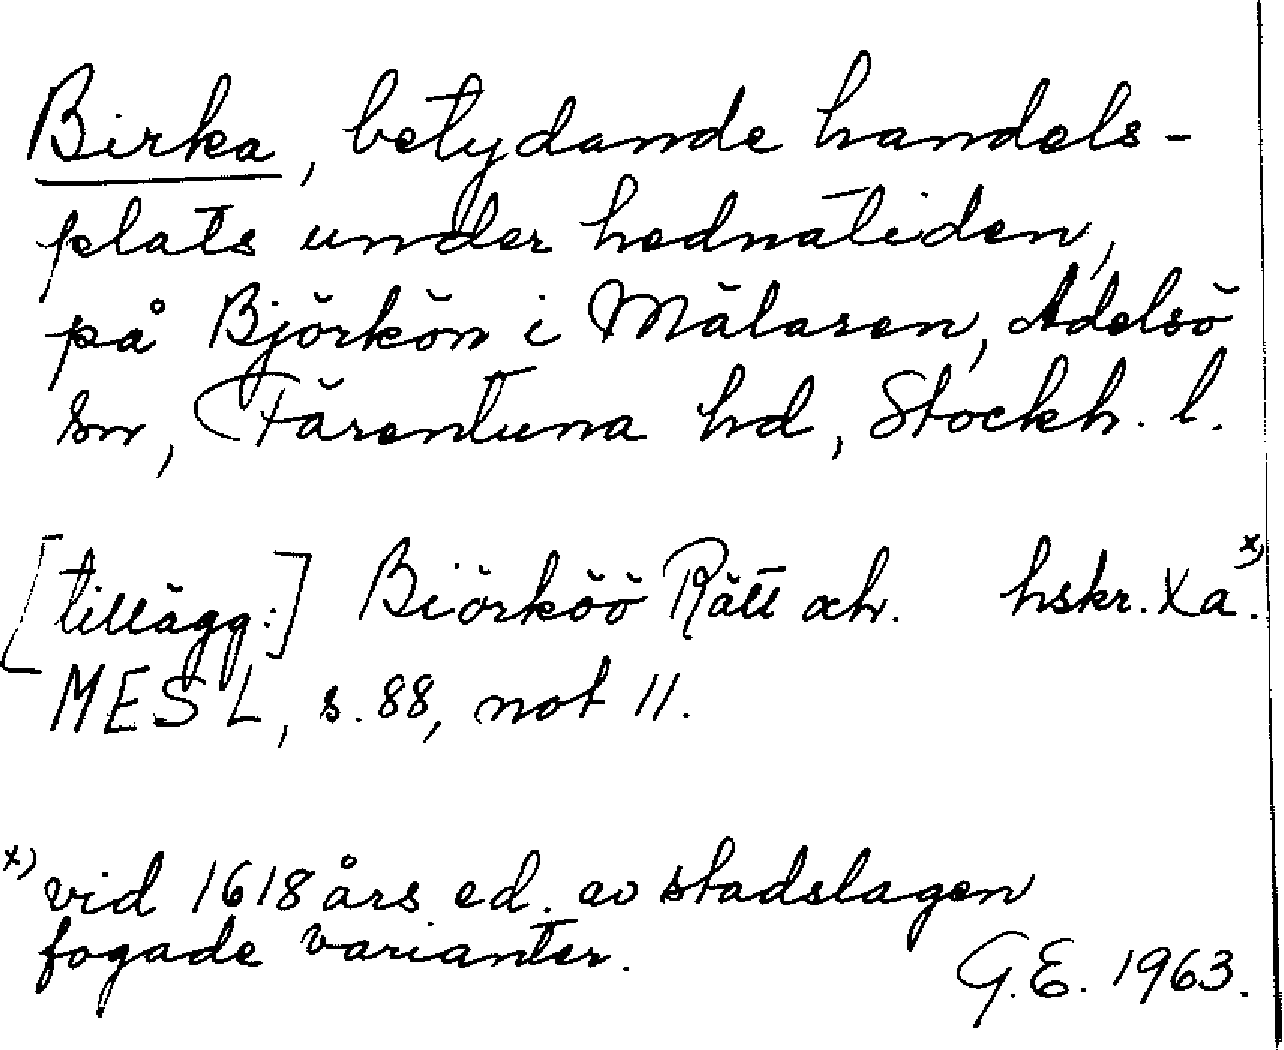 Birka, betydande handels-
plats under hednatiden,
på Björkön i Mälaren, Adelsö
sn, Färentuna hd, Stockh. l.
[tillägg:] Biörköö Rätt och. hskr. Xa.x)
MESL, s. 88, not 11.
x) vid 1618 års ed. av stadslagen
fogade varianter.
G.E. 1963.